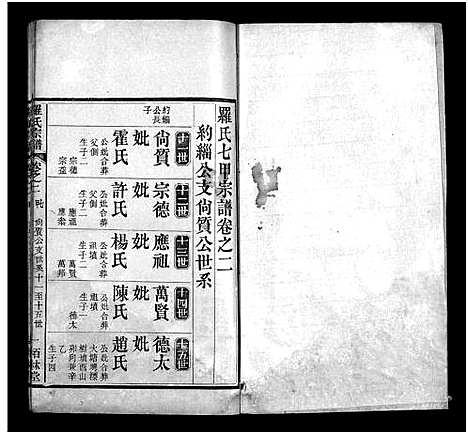 羅氏七甲宗譜卷之二
約緇公支尙質公世系
十一世
約緇公長子
尙質
妣霍氏
公妣合葬父側
生子二
宗德
宗盃
十二世
宗德
妣許氏
公妣合葬
生子二
應祖
十三世
應祖
妣楊氏
公妣合葬祖墳
生子二
萬賢
萬邦
十四世
萬賢
妣陳氏
公妣合葬祖墳
生子一
德太
十五世
德太
妣趙氏
公妣合葬
生子四
羅氏宗譜
卷之二
尙質公支世系十一至十五世
一
百林堂